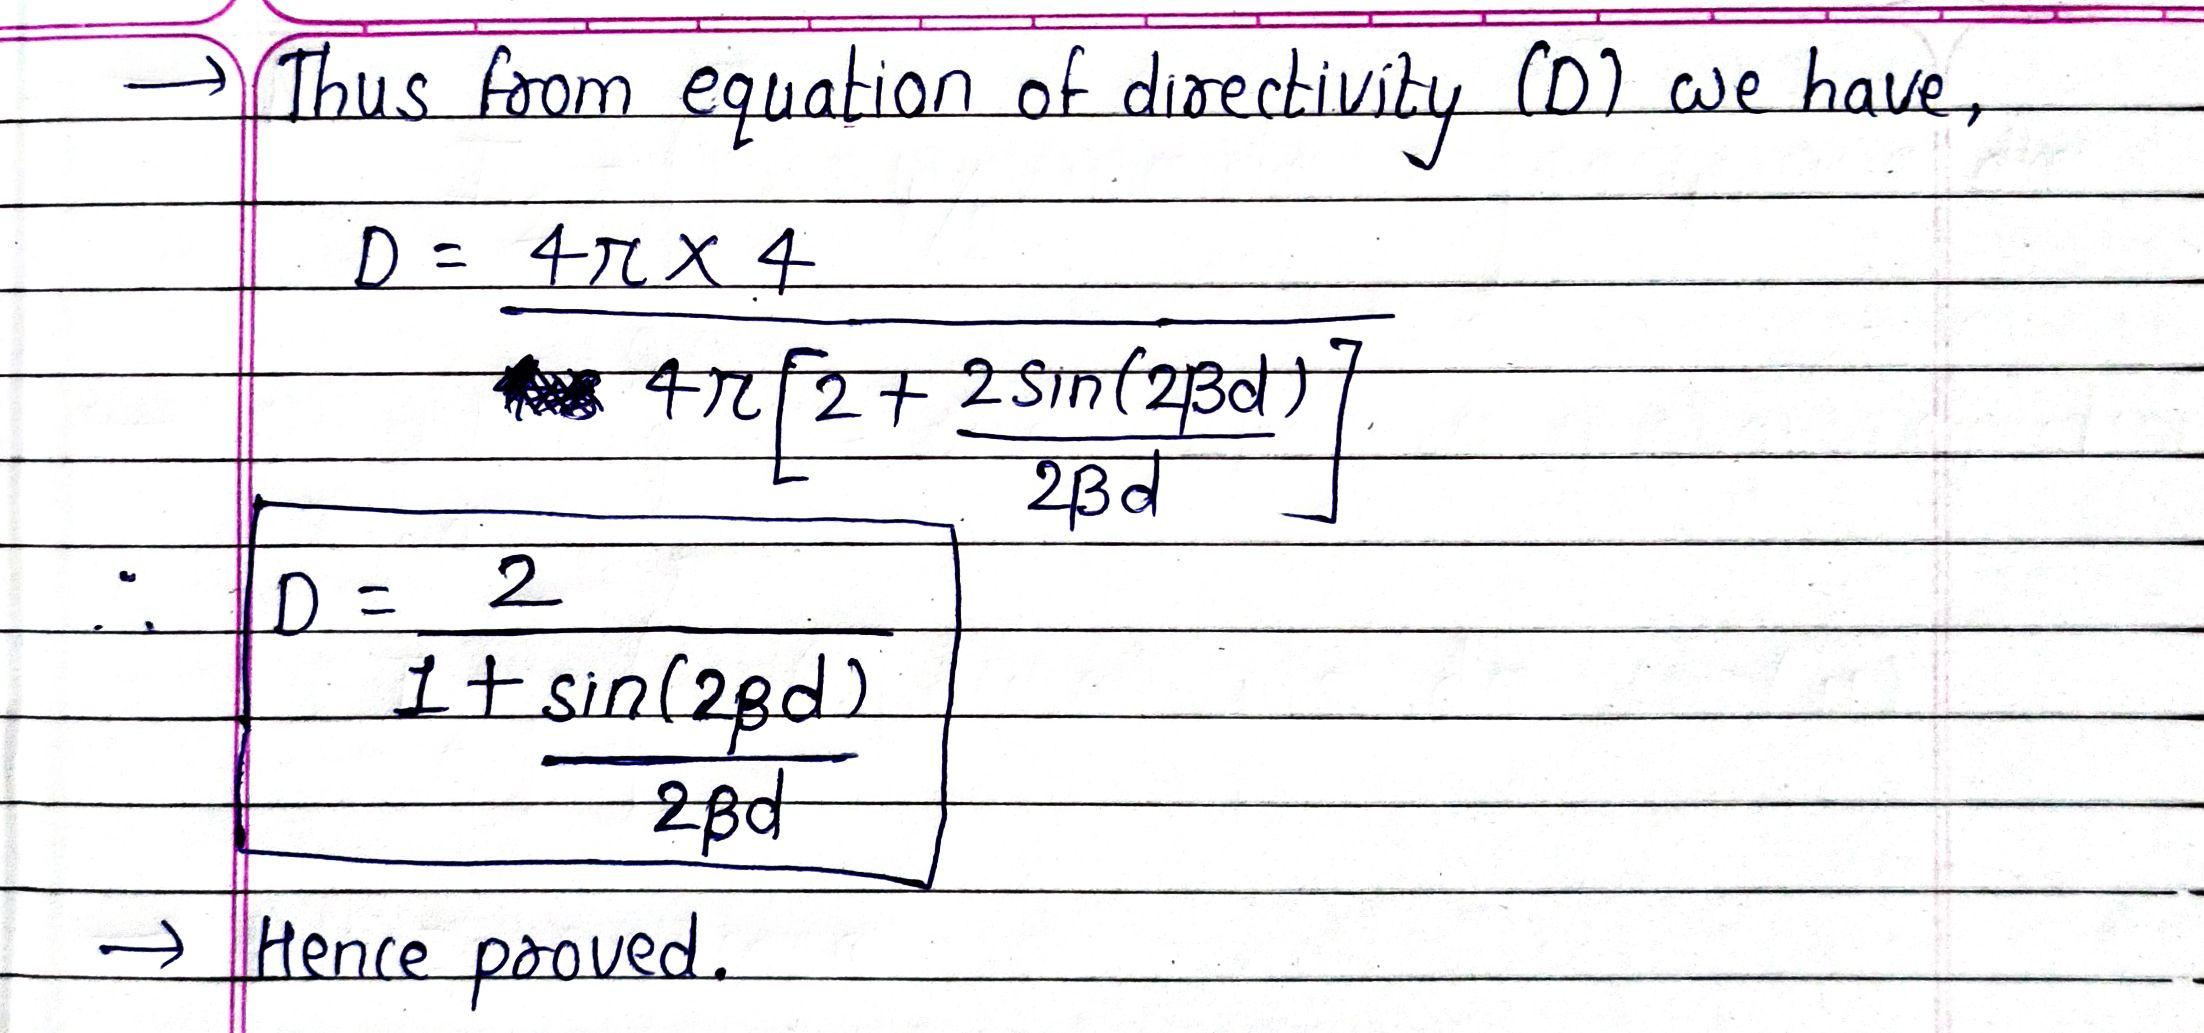 → Thus from equation of directivity (D) we have,
D = 4π × 4
4π[2 + 2sin(2βd)]
2βd
∴ D = 2
1 + sin(2βd)
2βd
→ Hence proved.